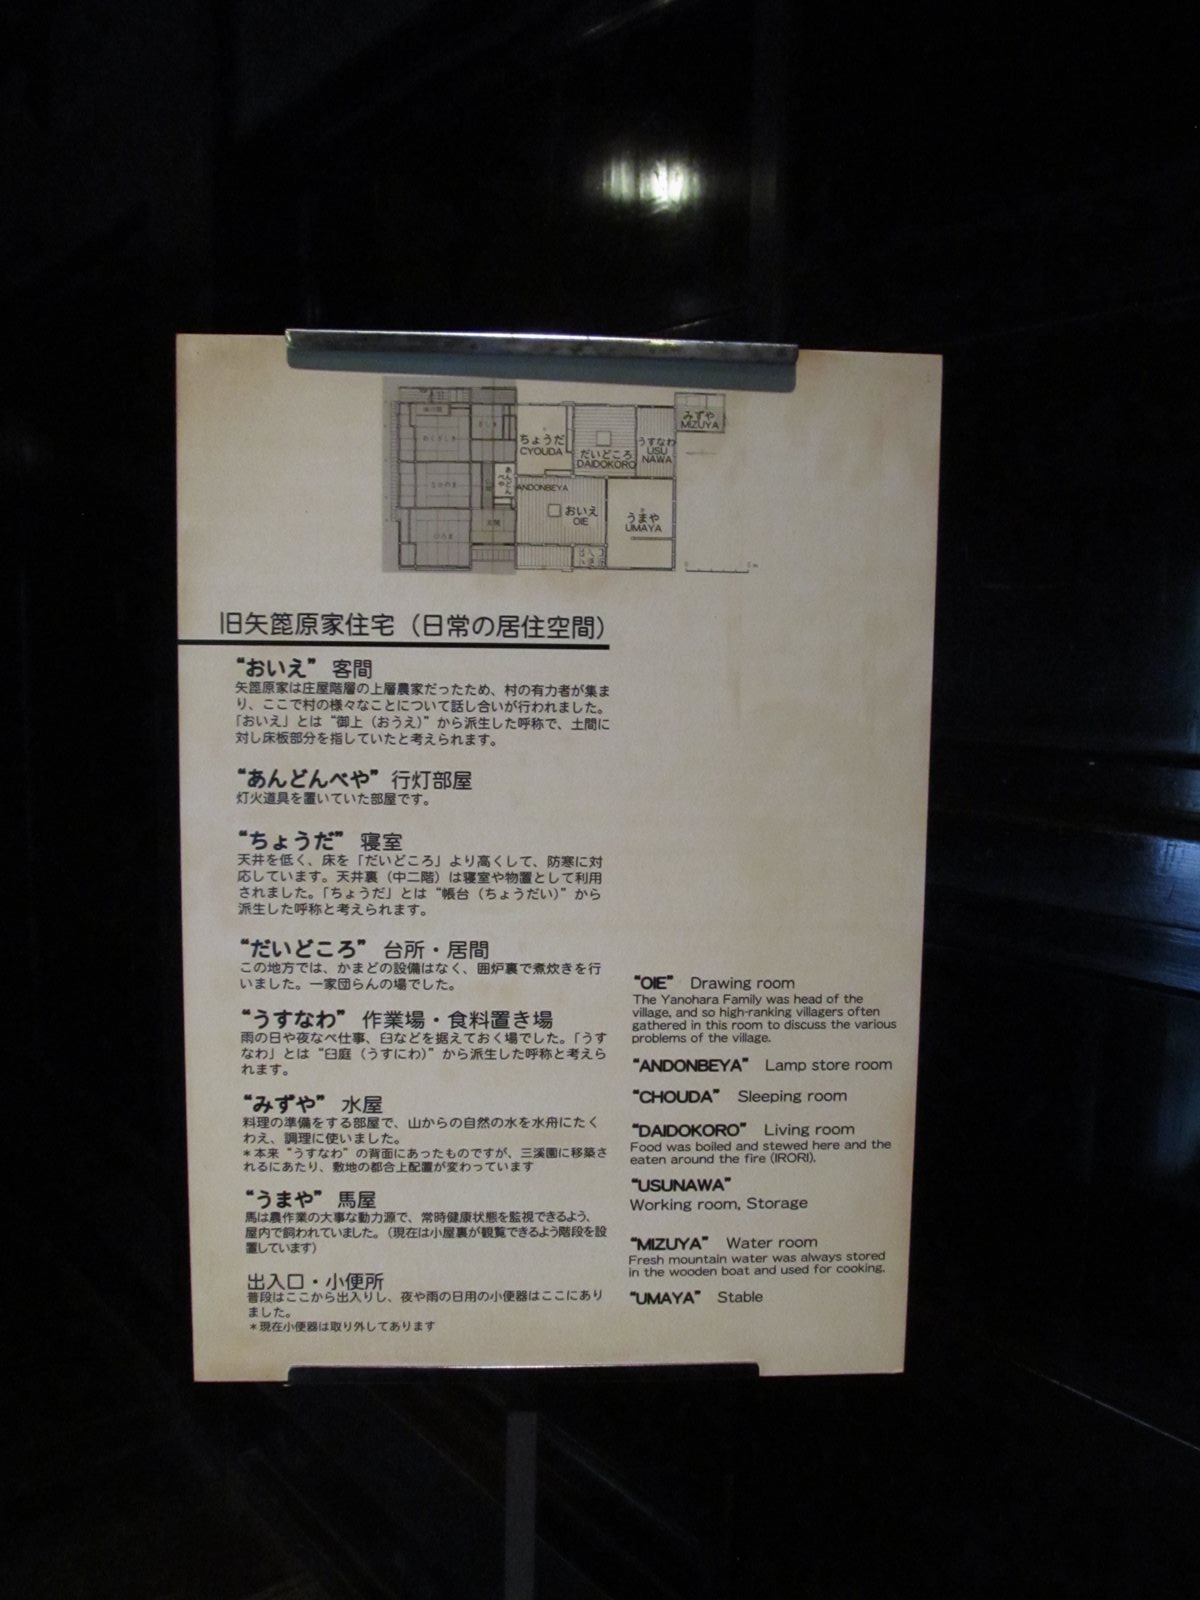 ちょうだ
CYOUDA
だいどころ
DAIDOKORO
うすなわ
USU
NAWA
みずや
MIZUYA
あんどんべや
ANDONBEYA
おいえ
OIE
うまや
UMAYA
旧矢箆原家住宅（日常の居住空間）
“おいえ” 客間
矢箆原家は庄屋階層の上層農家だったため、村の有力者が集ま
り、ここで村の様々なことについて話し合いが行われました。
「おいえ」とは“御上（おうえ）”から派生した呼称で、土間に
対し床板部分を指していたと考えられます。
“あんどんべや” 行灯部屋
灯火道具を置いていた部屋です。
“ちょうだ” 寝室
天井を低く、床を「だいどころ」より高くして、防寒に対
応しています。天井裏（中二階）は寝室や物置として利用
されました。「ちょうだ」とは“帳台（ちょうだい）”から
派生した呼称と考えられます。
“だいどころ” 台所・居間
この地方では、かまどの設備はなく、囲炉裏で煮炊きを行
いました。一家団らんの場でした。
“うすなわ” 作業場・食料置き場
雨の日や夜なべ仕事、臼などを据えておく場でした。「うす
なわ」とは“臼庭（うすにわ）”から派生した呼称と考えら
れます。
“みずや” 水屋
料理の準備をする部屋で、山からの自然の水を水舟にたく
わえ、調理に使いました。
＊本来“うすなわ”の背面にあったものですが、三溪園に移築さ
れるにあたり、敷地の都合上配置が変わっています
“うまや” 馬屋
馬は農作業の大事な動力源で、常時健康状態を監視できるよう、
屋内で飼われていました。（現在は小屋裏が観覧できるよう階段を設
置しています）
出入口・小便所
普段はここから出入りし、夜や雨の日用の小便器はここにあり
ました。
＊現在小便器は取り外してあります
“OIE” Drawing room
The Yanohara Family was head of the
village, and so high-ranking villagers often
gathered in this room to discuss the various
problems of the village.
“ANDONBEYA” Lamp store room
“CHOUDA” Sleeping room
“DAIDOKORO” Living room
Food was boiled and stewed here and the
eaten around the fire (IRORI).
“USUNAWA”
Working room, Storage
“MIZUYA” Water room
Fresh mountain water was always stored
in the wooden boat and used for cooking.
“UMAYA” Stable